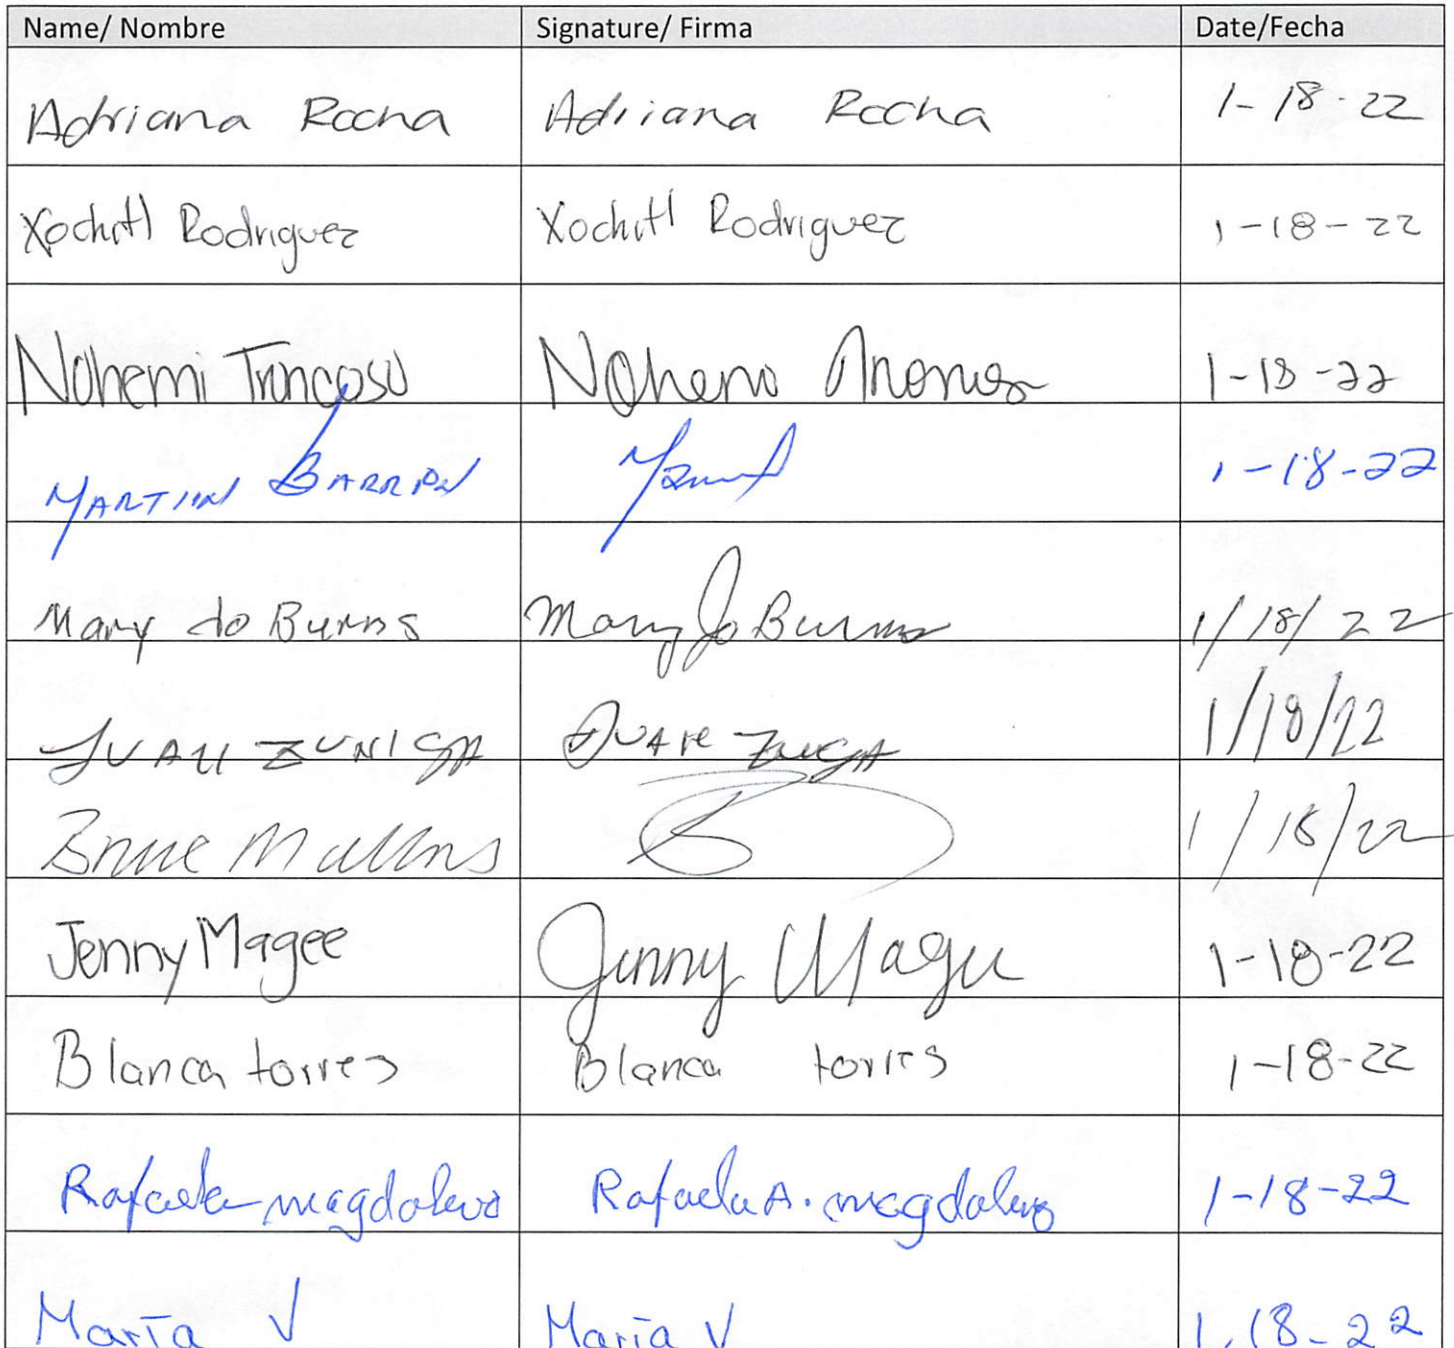 Name/ Nombre Signature/ Firma Date/Fecha
Adriana Rocha Adriana Rocha 1-18-22
Xochitl Rodriguez Xochitl Rodriguez 1-18-22
Nohemi Troncoso 1-18-22
MARTIN BARRON 1-18-22
Mary Jo Burns Mary Jo Burns 1/18/22
JUAN ZUNIGA JUAN 1/18/22
Mullins 1/18/22
Jenny Magee Jenny Magee 1-18-22
Blanca torres Blanca torres 1-18-22
Rafaela magdaleno Rafaela A. magdaleno 1-18-22
María V María V 1.18-22